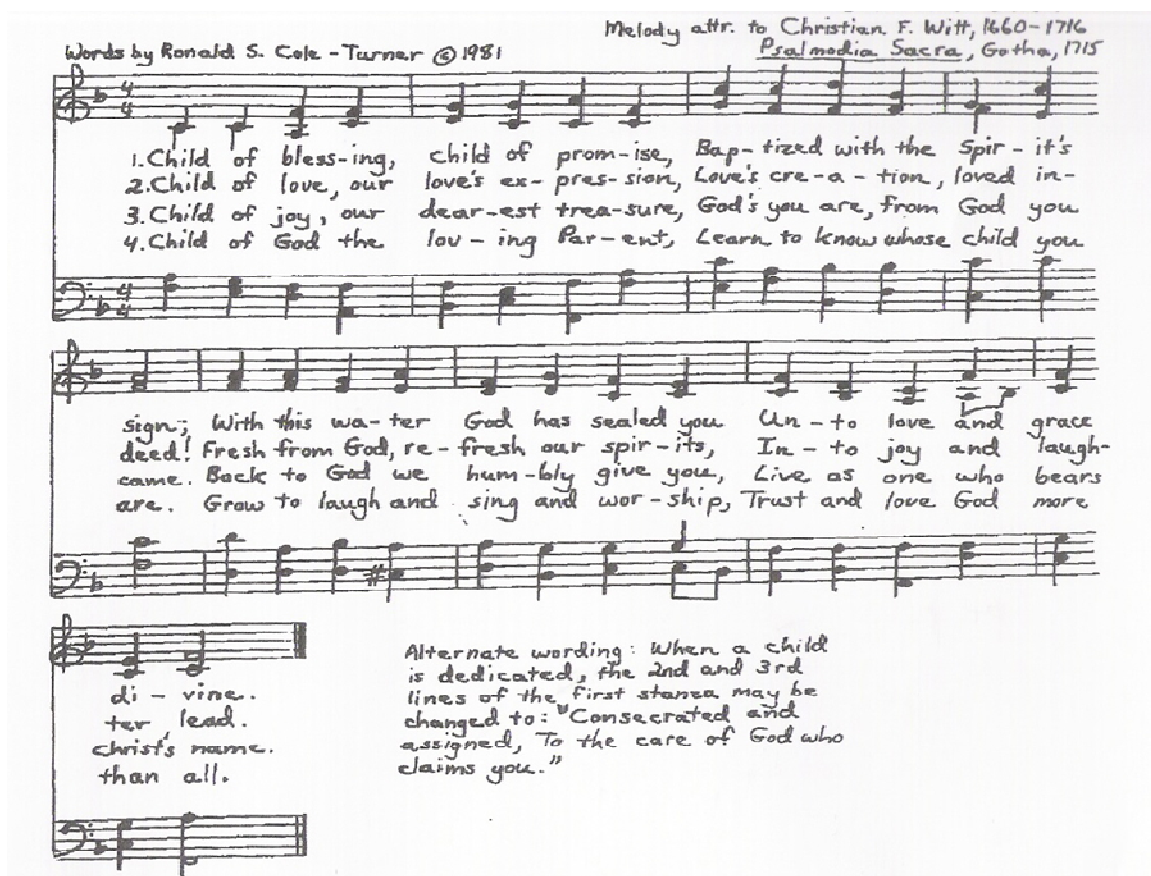 Melody attr. to Christian F. Witt, 1660-1716
Words by Ronald S. Cole-Turner © 1981
Psalmodia Sacra, Gotha, 1715
1. Child of bless-ing, child of prom-ise, Bap-tized with the Spir-it's
2. Child of love, our love's ex-pres-sion, Love's cre-a-tion, loved in-
3. Child of joy, our dear-est trea-sure, God's you are, from God you
4. Child of God the lov-ing Par-ent, Learn to know whose child you
sign; With this wa-ter God has sealed you Un-to love and grace
deed! Fresh from God, re-fresh our spir-its, In-to joy and laugh-
came. Back to God we hum-bly give you, Live as one who bears
are. Grow to laugh and sing and wor-ship, Trust and love God more
di-vine.
ter lead.
Christ's name.
than all.
Alternate wording: When a child
is dedicated, the 2nd and 3rd
lines of the first stanza may be
changed to: "Consecrated and
assigned, To the care of God who
claims you."